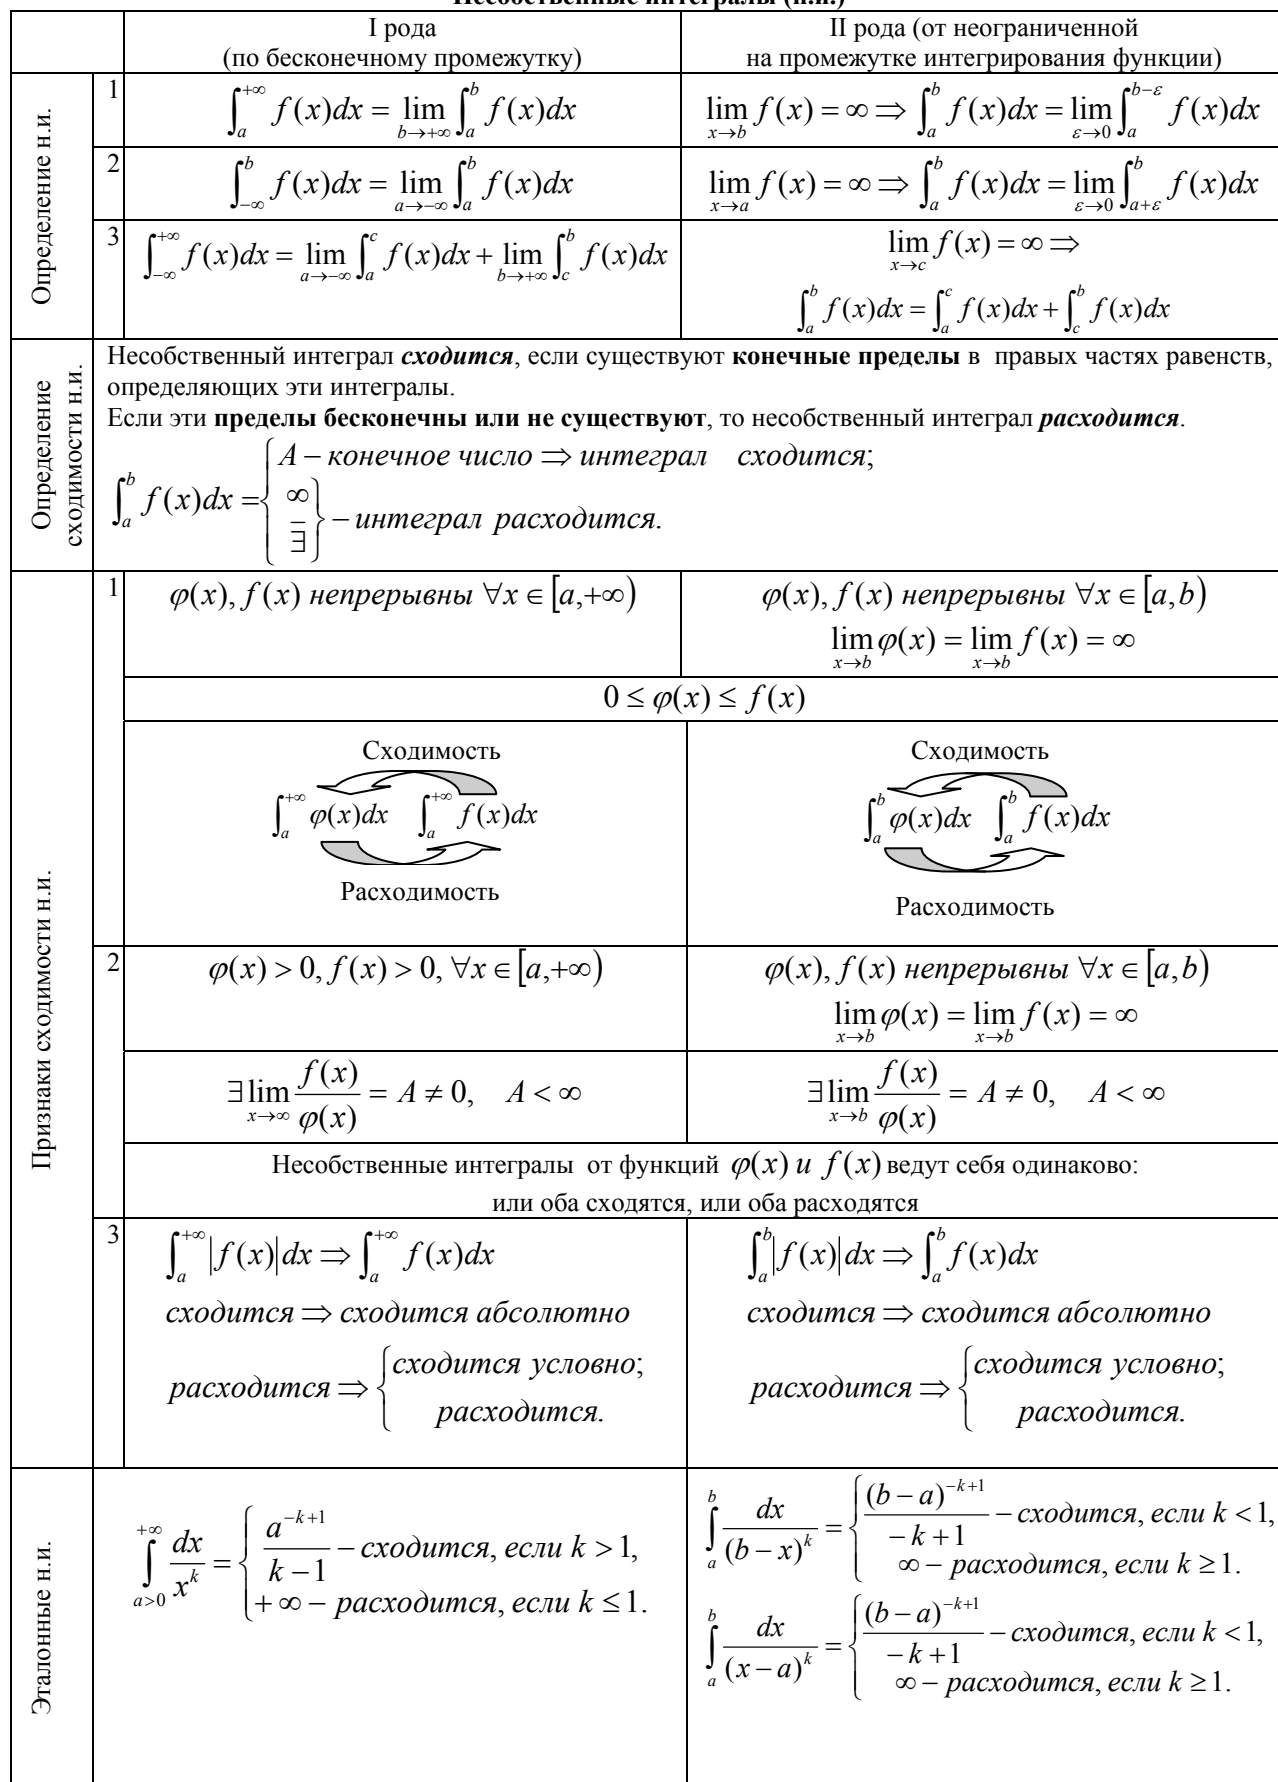 Несобственные интегралы (н.и.)
I рода
(по бесконечному промежутку)
II рода (от неограниченной
на промежутке интегрирования функции)
Определение н.и.
1
∫_a^{+∞} f(x)dx = lim_{b→+∞} ∫_a^b f(x)dx
lim_{x→b} f(x) = ∞ ⇒ ∫_a^b f(x)dx = lim_{ε→0} ∫_a^{b−ε} f(x)dx
2
∫_{−∞}^b f(x)dx = lim_{a→−∞} ∫_a^b f(x)dx
lim_{x→a} f(x) = ∞ ⇒ ∫_a^b f(x)dx = lim_{ε→0} ∫_{a+ε}^b f(x)dx
3
∫_{−∞}^{+∞} f(x)dx = lim_{a→−∞} ∫_a^c f(x)dx + lim_{b→+∞} ∫_c^b f(x)dx
lim_{x→c} f(x) = ∞ ⇒
∫_a^b f(x)dx = ∫_a^c f(x)dx + ∫_c^b f(x)dx
Определение
сходимости н.и.
Несобственный интеграл сходится, если существуют конечные пределы в правых частях равенств,
определяющих эти интегралы.
Если эти пределы бесконечны или не существуют, то несобственный интеграл расходится.
∫_a^b f(x)dx = { A – конечное число ⇒ интеграл сходится;
∞
∃̅ } – интеграл расходится.
Признаки сходимости н.и.
1
φ(x), f(x) непрерывны ∀x ∈ [a,+∞)
φ(x), f(x) непрерывны ∀x ∈ [a,b)
lim_{x→b} φ(x) = lim_{x→b} f(x) = ∞
0 ≤ φ(x) ≤ f(x)
Сходимость
∫_a^{+∞} φ(x)dx ∫_a^{+∞} f(x)dx
Расходимость
Сходимость
∫_a^b φ(x)dx ∫_a^b f(x)dx
Расходимость
2
φ(x) > 0, f(x) > 0, ∀x ∈ [a,+∞)
φ(x), f(x) непрерывны ∀x ∈ [a,b)
lim_{x→b} φ(x) = lim_{x→b} f(x) = ∞
∃ lim_{x→∞} f(x)/φ(x) = A ≠ 0, A < ∞
∃ lim_{x→b} f(x)/φ(x) = A ≠ 0, A < ∞
Несобственные интегралы от функций φ(x) и f(x) ведут себя одинаково:
или оба сходятся, или оба расходятся
3
∫_a^{+∞} |f(x)|dx ⇒ ∫_a^{+∞} f(x)dx
сходится ⇒ сходится абсолютно
расходится ⇒ { сходится условно;
расходится.
∫_a^b |f(x)|dx ⇒ ∫_a^b f(x)dx
сходится ⇒ сходится абсолютно
расходится ⇒ { сходится условно;
расходится.
Эталонные н.и.
∫_{a>0}^{+∞} dx/x^k = { a^{−k+1}/(k−1) – сходится, если k > 1,
+∞ – расходится, если k ≤ 1.
∫_a^b dx/(b−x)^k = { (b−a)^{−k+1}/(−k+1) – сходится, если k < 1,
∞ – расходится, если k ≥ 1.
∫_a^b dx/(x−a)^k = { (b−a)^{−k+1}/(−k+1) – сходится, если k < 1,
∞ – расходится, если k ≥ 1.